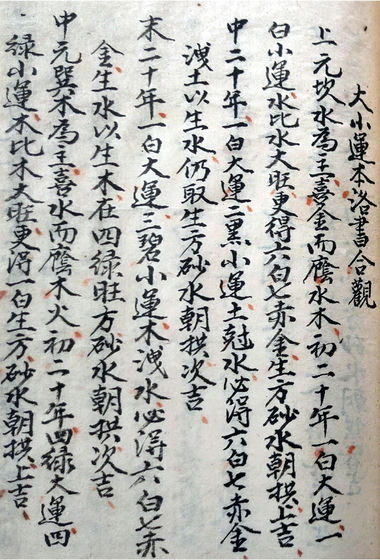 大小運本洛書合觀
上元坎水為主喜金而應水木初二十年一白大運一
白小運水比水大旺更得六白七赤金生方砂水朝拱上吉
中二十年一白大運二黑小運土尅水必得六白七赤金
洩土以生水仍取生方砂水朝拱次吉
末二十年一白大運三碧小運木洩水必得六白七赤
金生水以生木在四綠旺方砂水朝拱次吉
中元巽木為主喜水而應木火初二十年四綠大運四
綠小運木比木大旺更得一白生方砂水朝拱上吉